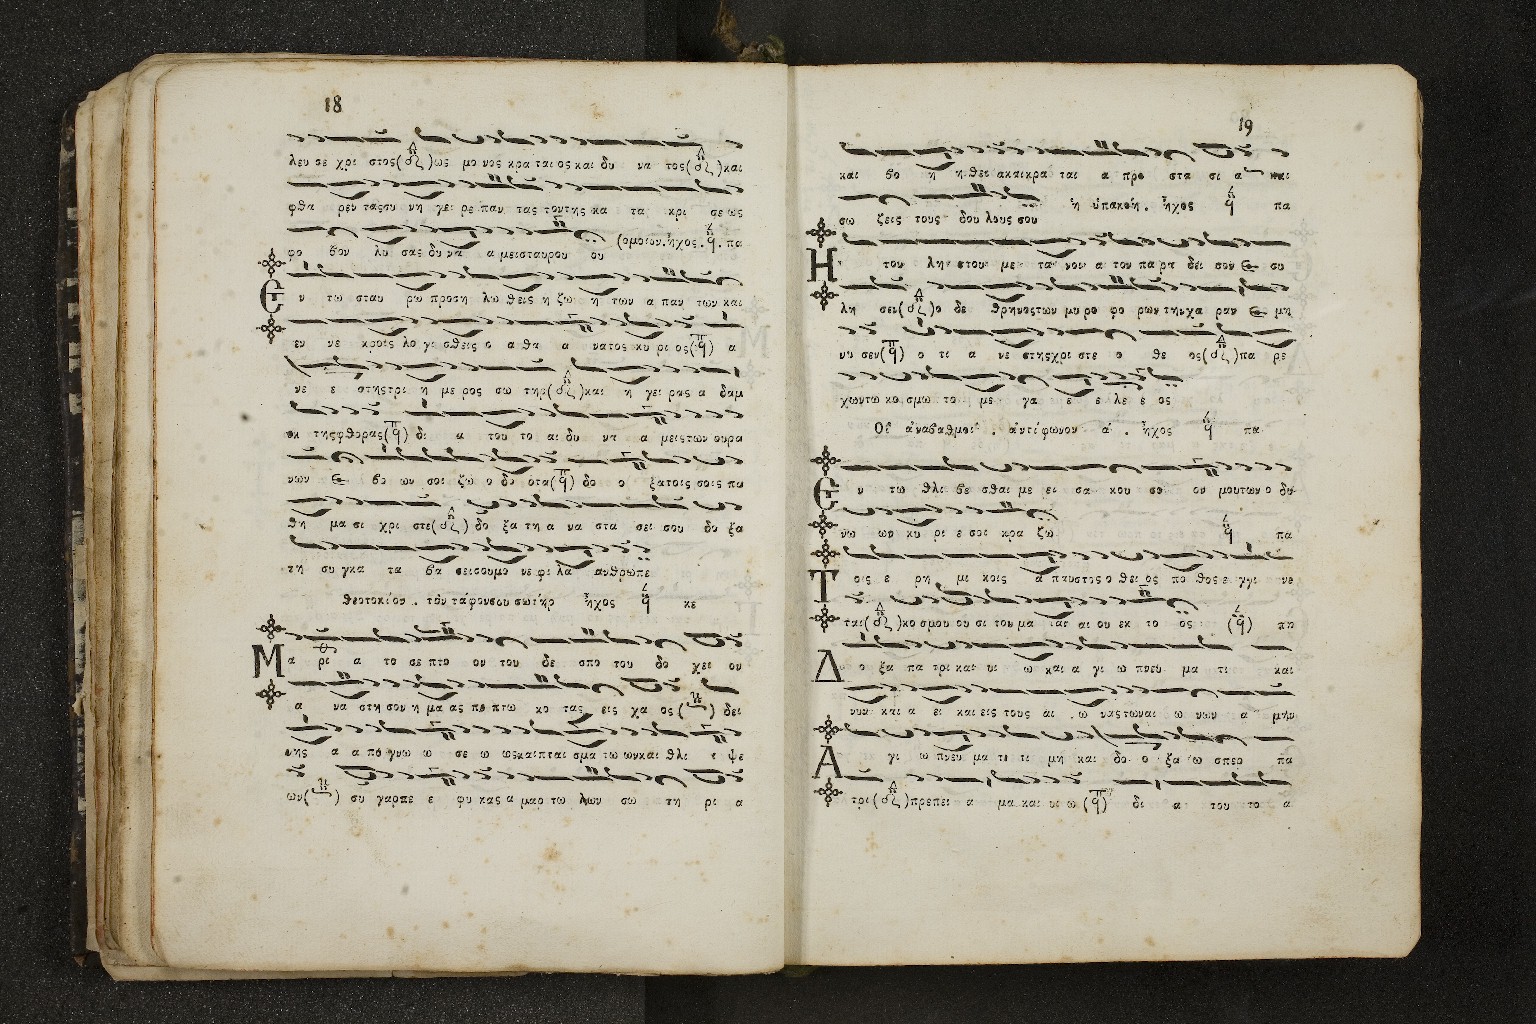 18
λευ σε χρι στος( )ως μο νος κρα ται ος και δυ να τος( )και
φθα ρεν τας συ νη γει ρε παν τας τον της κα τα κρι σε ως
φο βον λυ σας δυ να α μει σταυρου ου (ομοιον. ἦχος. q. πα
Εν τω σταυ ρω προση λω θεις η ζω η των α παν των και
εν νε κροις λο γι σθεις ο α θα α νατος κυ ρι ος(q) α
νε ε στης τρι η με ρος σω τηρ( )και η γει ρας α δαμ
εκ της φθορας(q) δι α του το αι δυ να α μεις των ουρα
νων ε βο ων σοι ζω ο δο οτα(q) δο ο ξα τοις σοις πα
θη μα σι χρι στε( ) δο ξα τη α να στα σει σου δο ξα
τη συ γκα τα βα σει σου μο νε φι λα ανθρωπε
Θεοτοκίον. τὸν τάφον σου σωτὴρ ἦχος q κε
Μα ρι α το σε πτο ον του δε σπο του δο χει ον
α να στη σον η μα ας πε πτω κο τας εις χα ος( ) δει
νης α α πο γνω ω σε ω ως και πται σμα τω ων και θλι ι ψε
ων( ) συ γαρ πε ε φυ κας α μαρ τω λων σω τη ρι α
19
και βο η η θει α και κρα ται α προ στα σι α και
σω ζεις τους δου λους σου ἡ ὑπακοή. ἦχος q πα
Η του λη στου με τα νοι α τον πα ρα δει σον ε συ
λη σεν( )ο δε θρηνος των μυ ρο φο ρων την χα ραν ε μη
νυ σεν(q) ο τι α νε στης χρι στε ο θε ος( )πα ρε
χων τω κο σμω το με γα ε ε λε ε ος
Οἱ ἀναβαθμοί. ἀντίφωνον ά. ἦχος q πα
Εν τω θλι βε σθαι με ει σα κου σο ον μου των ο δυ
νω ων κυ ρι ε σοι κρα ζω q πα
Τοις ε ρη μι κοις α παυστος ο θει ος πο θος ε γγι νε
ται( )κο σμου ου σι του μα ται αι ου εκ το ος (q) πα
Δο ξα πα τρι και υι ω και α γι ω πνευ μα τι και
νυν και α ει και εις τους αι ω νας των αι ω νων α μην
Α γι ω πνευ μα τι τι μη και δο ο ξα ω σπερ πα
τρι( )πρεπει α μα και υι ω (q) δι α του το α